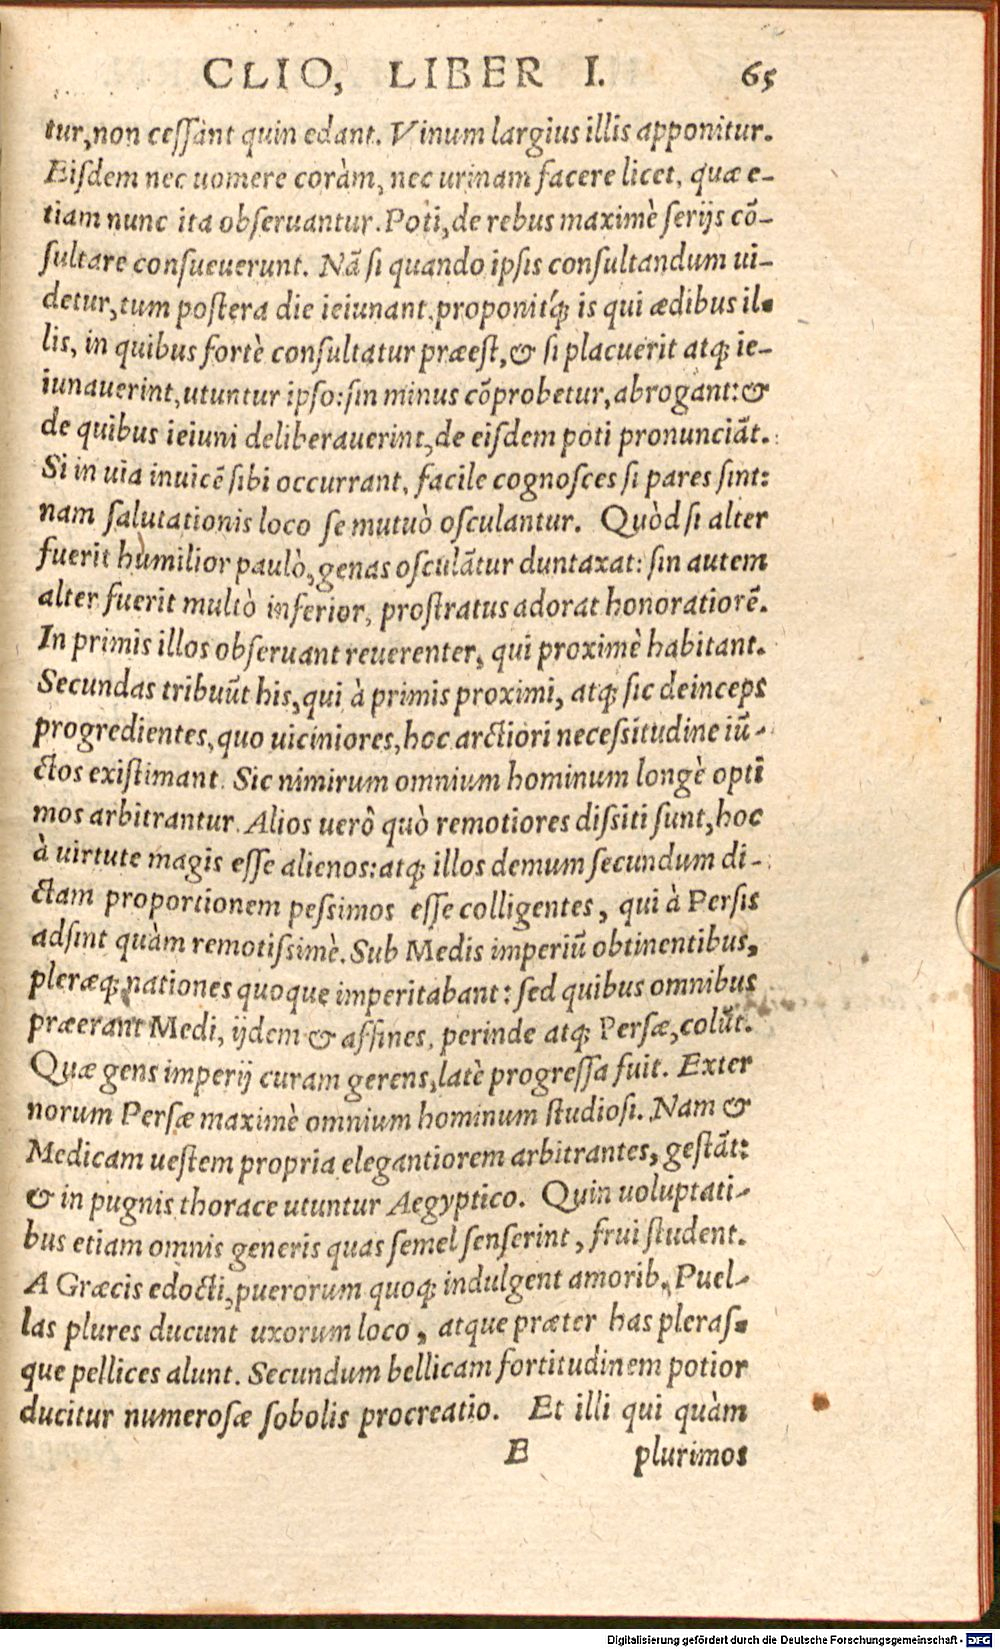 CLIO, LIBER I. 65
tur,non ceſſànt quin edant. Vinum largius illis apponitur.
Eiſdem nec uomere coràm, nec urinam facere licet, quæ e-
tiam nunc ita obſeruantur. Poti, de rebus maximè ſerijs cō-
ſultare conſueuerunt. Nā ſi quando ipſis conſultandum ui-
detur, tum poſtera die ieiunant. proponitq́; is qui ædibus il-
lis, in quibus fortè conſultatur præeſt, & ſi placuerit atq; ie-
iunauerint, utuntur ipſo: ſin minus cōprobetur, abrogant: &
de quibus ieiuni deliberauerint, de eiſdem poti pronunciāt.
Si in uia inuicē ſibi occurrant, facile cognoſces ſi pares ſint:
nam ſalutationis loco ſe mutuò oſculantur. Quòd ſi alter
fuerit humilior paulò, genas oſculātur duntaxat: ſin autem
alter fuerit multò inferior, proſtratus adorat honoratiorē.
In primis illos obſeruant reuerenter, qui proximè habitant.
Secundas tribuūt his, qui à primis proximi, atq; ſic deinceps
progredientes, quo uiciniores, hoc arctiori neceſſitudine iū-
ctos exiſtimant. Sic nimirum omnium hominum longè opti
mos arbitrantur. Alios uerô quò remotiores diſsiti ſunt, hoc
à uirtute magis eſſe alienos: atq; illos demum ſecundum di-
ctam proportionem peſsimos eſſe colligentes, qui à Perſis
adſint quàm remotiſsimè. Sub Medis imperiū obtinentibus,
pleræq; nationes quoque imperitabant: ſed quibus omnibus
præerant Medi, ijdem & affines, perinde atq; Perſæ, colūt.
Quæ gens imperij curam gerens, latè progreſſa fuit. Exter
norum Perſæ maximè omnium hominum ſtudioſi. Nam &
Medicam ueſtem propria elegantiorem arbitrantes, geſtāt:
& in pugnis thorace utuntur Aegyptico. Quin uoluptati-
bus etiam omnis generis quas ſemel ſenſerint, frui ſtudent.
A Græcis edocti, puerorum quoq; indulgent amorib. Puel-
las plures ducunt uxorum loco, atque præter has pleraſ-
que pellices alunt. Secundum bellicam fortitudinem potior
ducitur numeroſæ ſobolis procreatio. Et illi qui quàm
E plurimos
Digitalisierung gefördert durch die Deutsche Forschungsgemeinschaft - DFG